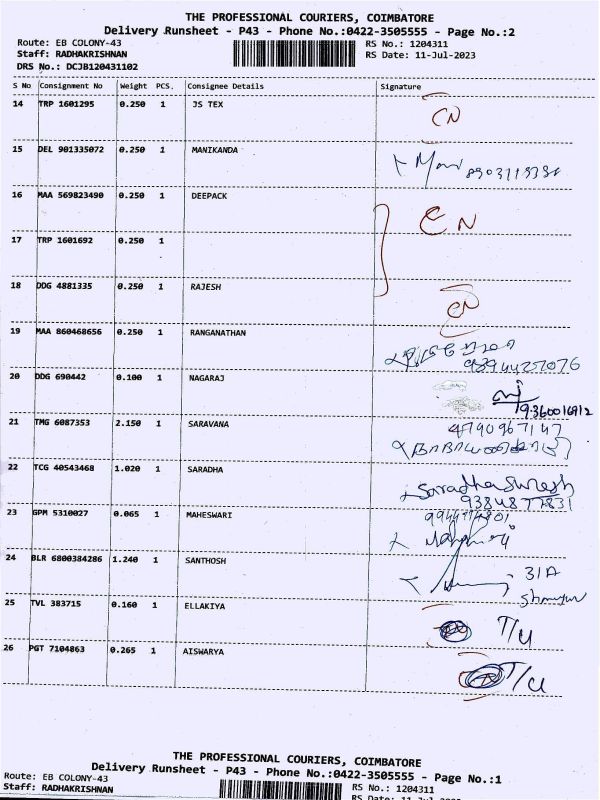 THE PROFESSIONAL COURIERS, COIMBATORE
Delivery Runsheet - P43 - Phone No.:0422-3505555 - Page No.:2
Route: EB COLONY-43 RS No.: 1204311
Staff: RADHAKRISHNAN RS Date: 11-Jul-2023
DRS No.: DCJB120431102
S No Consignment No Weight PCS. Consignee Details Signature
14 TRP 1601295 0.250 1 JS TEX CN
15 DEL 901335072 0.250 1 MANIKANDA
16 MAA 569823490 0.250 1 DEEPACK CN
17 TRP 1601692 0.250 1
18 DDG 4881335 0.250 1 RAJESH CN
19 MAA 860468656 0.250 1 RANGANATHAN
20 DDG 690442 0.100 1 NAGARAJ
9360016912
21 TMG 6087353 2.150 1 SARAVANA 4790967147
22 TCG 40543468 1.020 1 SARADHA Saradha Suresh
9384877831
23 GPM 5310027 0.065 1 MAHESWARI
24 BLR 6800384286 1.240 1 SANTHOSH 31A
25 TVL 383715 0.160 1 ELLAKIYA T/U
26 PGT 7104863 0.265 1 AISWARYA T/U
THE PROFESSIONAL COURIERS, COIMBATORE
Delivery Runsheet - P43 - Phone No.:0422-3505555 - Page No.:1
Route: EB COLONY-43 RS No.: 1204311
Staff: RADHAKRISHNAN